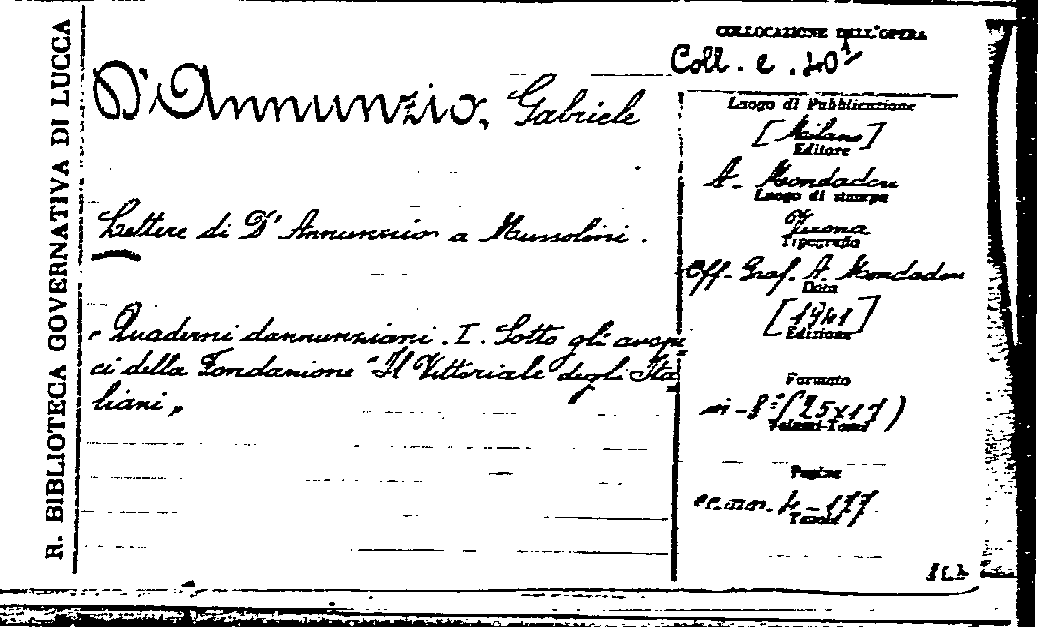 R. BIBLIOTECA GOVERNATIVA DI LUCCA
D'Annunzio, Gabriele
Lettere di D'Annunzio a Mussolini.
"Quaderni dannunziani. I. Sotto gli auspi=
ci della Fondazione "Il Vittoriale degli Ita=
liani„
COLLOCAZIONE DELL'OPERA
Coll. e. 40
Luogo di Pubblicazione
[Milano]
Editore
A. Mondadori
Luogo di stampa
Verona
Tipografia
Off. Graf. A. Mondadori
Data
[1941]
Edizione
Formato
in-8° (25x17)
Volumi-Tomi
Pagine
4-177
Tavole